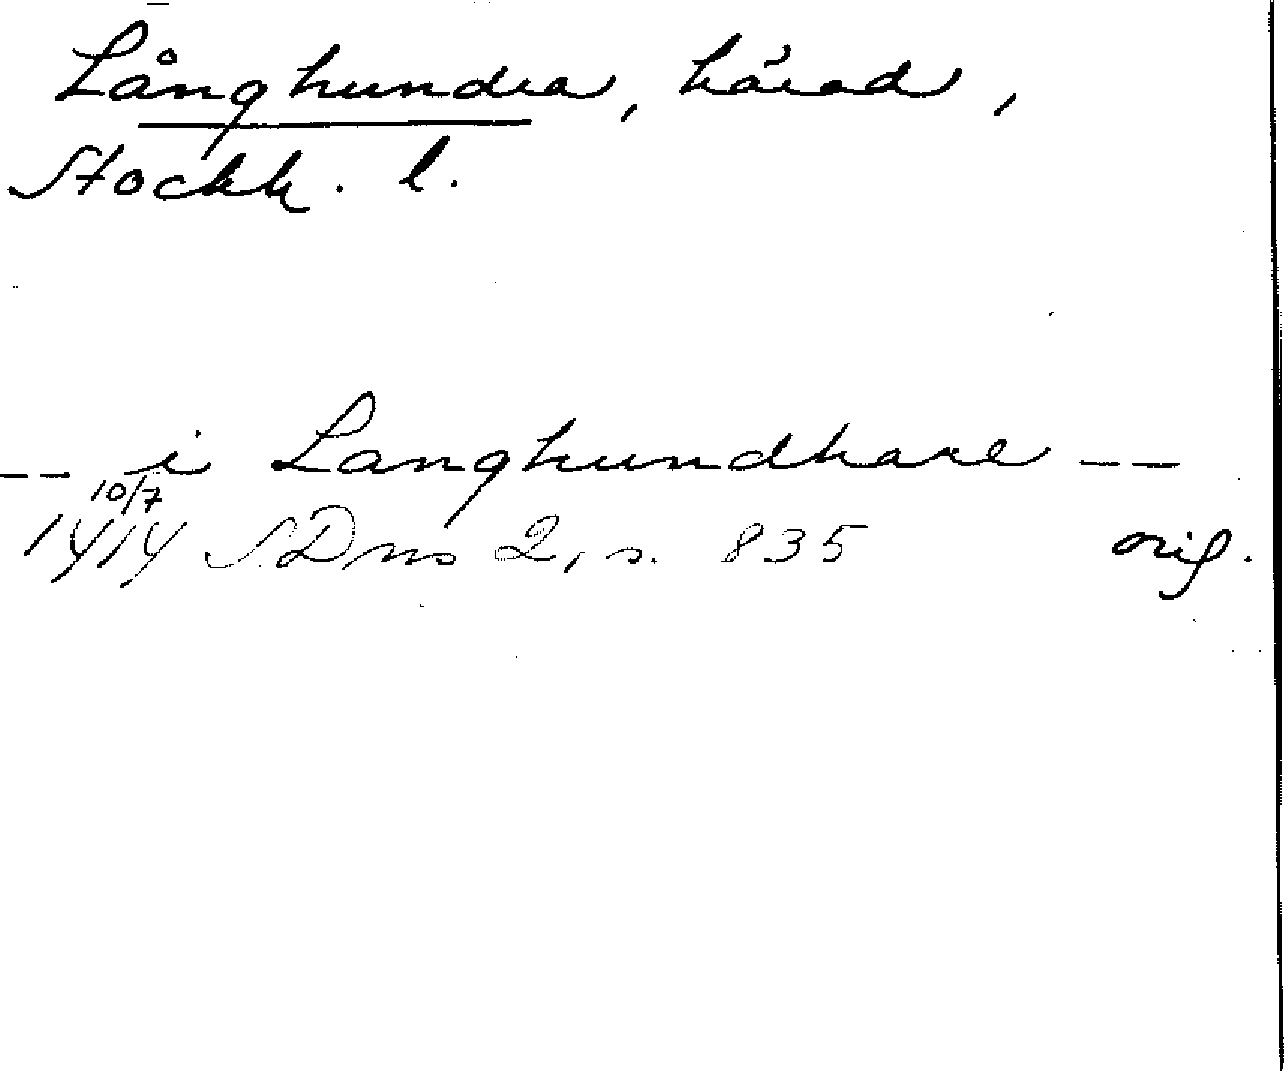 Långhundra, härad,
Stockh. l.
-- i Langhundhare --
10/7
1414 S.Dns 2, s. 835 orig.